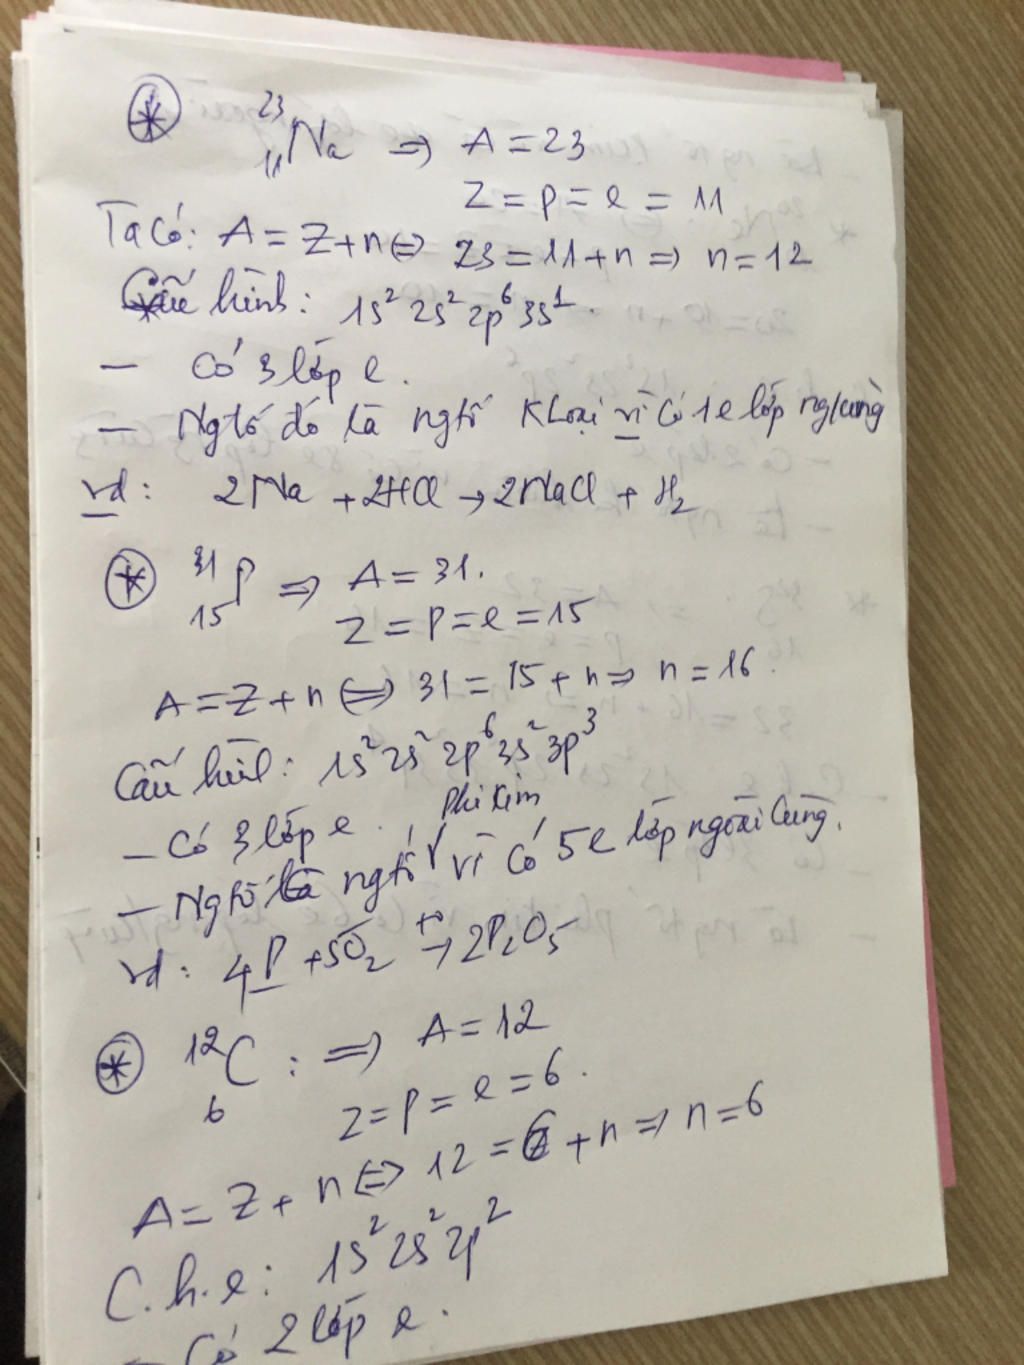 ²³₁₁Na => A = 23
Z = p = e = 11
Ta có: A = Z + n <=> 23 = 11 + n => n = 12
Cấu hình: 1s² 2s² 2p⁶ 3s¹.
- Có 3 lớp e.
- Ngtố đó là ngtố kloại vì có 1e lớp ng/cùng
vd: 2Na + 2HCl → 2NaCl + H₂
³¹₁₅P => A = 31.
Z = P = e = 15
A = Z + n <=> 31 = 15 + n => n = 16.
Cấu hình: 1s² 2s² 2p⁶ 3s² 3p³
- Có 3 lớp e.
- Ngtố là ngtố phi kim vì có 5e lớp ngoài cùng.
vd: 4P + 5O₂ t° → 2P₂O₅
¹²₆C: => A = 12
Z = P = e = 6.
A = Z + n <=> 12 = 6 + n => n = 6
C.h.e: 1s² 2s² 2p²
- Có 2 lớp e.